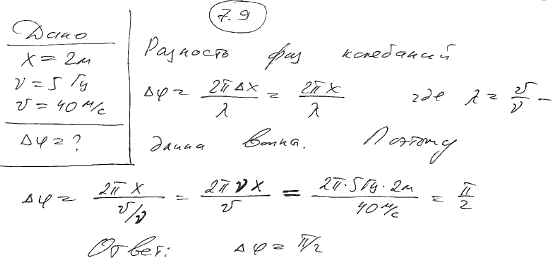 7.9
Дано
x = 2м
ν = 5 Гц
v = 40 м/с
Δφ = ?
Разность фаз колебаний
Δφ = 2πΔx/λ = 2πx/λ где λ = v/ν –
длина волна. Поэтому
Δφ = 2πx/(v/ν) = 2πνx/v = 2π·5Гц·2м/40 м/с = π/2
Ответ: Δφ = π/2